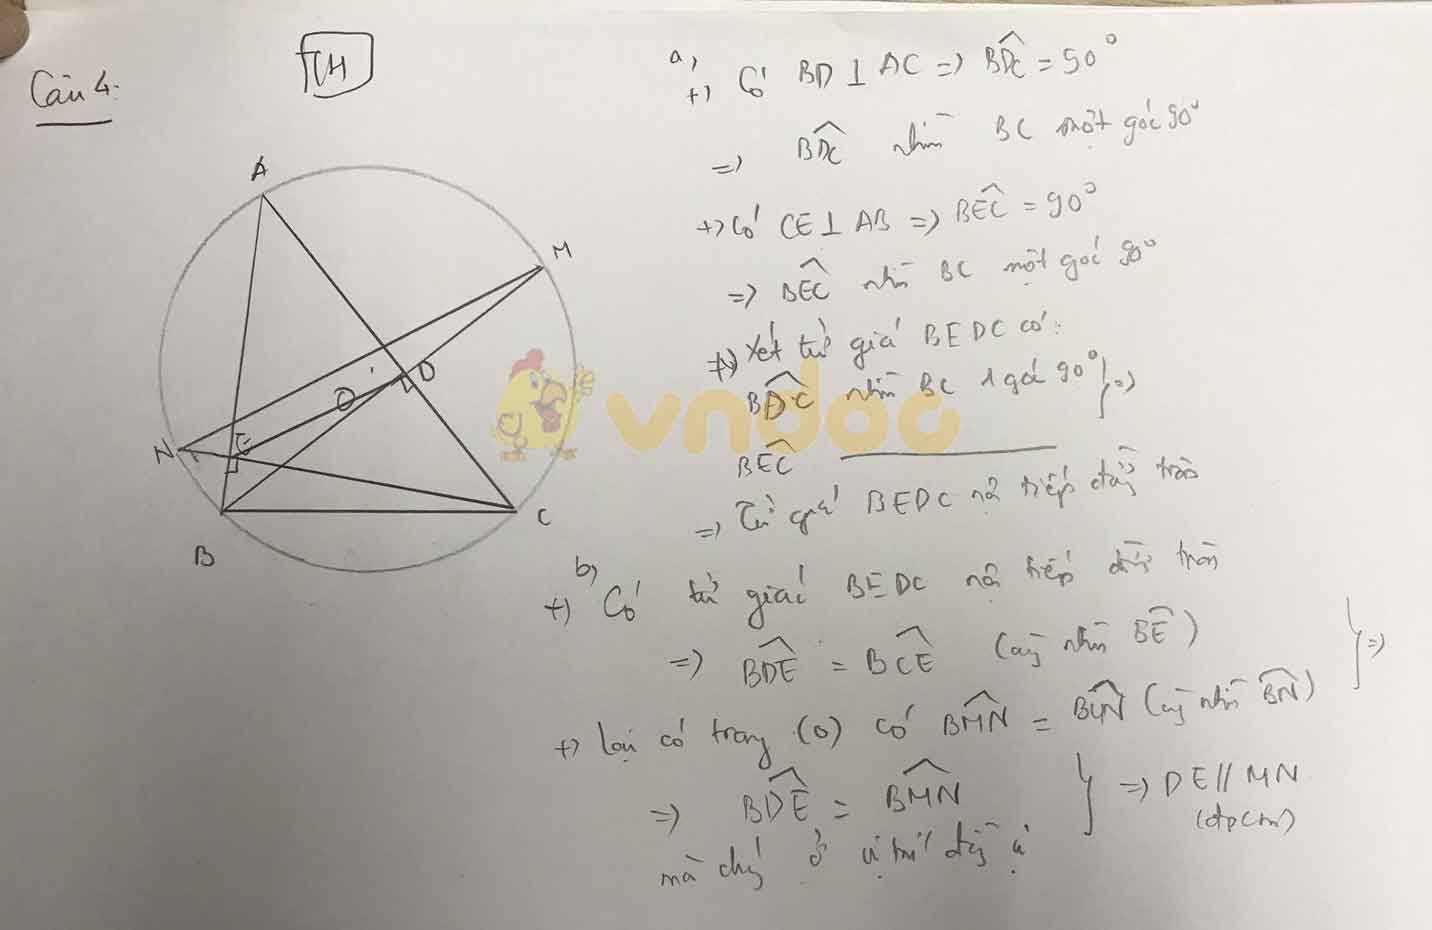 Câu 4:
TH
A
M
N
E
O
D
B
C
a,
+) Có BD ⊥ AC => BDC = 90°
=> BDC nhìn BC một góc 90°
+) Có CE ⊥ AB => BEC = 90°
=> BEC nhìn BC một góc 90°
+) Xét tứ giác BEDC có:
BDC nhìn BC 1 góc 90° } =>
BEC
=> Tứ giác BEDC nội tiếp đường tròn
b,
+) Có tứ giác BEDC nội tiếp đường tròn
=> BDE = BCE (cùng nhìn BE) } =>
+) lại có trong (O) có BMN = BCN (cùng nhìn BN)
=> BDE = BMN } => DE // MN
mà chúng ở vị trí đồng vị
(đpcm)
vndoc